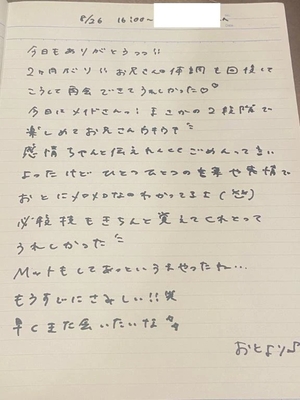 8/26 16:00〜
今日もありがとうっっ!!
2ヶ月だり!! お兄さんの体調も回復して
こうして再会できてうれしかった♡♡
今日にメイドさんっ! まさかの2段階で
楽しめてお兄さん
感情ちゃんと伝えれんくてごめんってるい
よったけどひとつひとつの言葉や表情で
おとにメロメロなのわかってるよ
必殺技もきちんと覚えてくれとって
うれしかった
Mットもしてあっというまやったね…
もうすでにさみしい!!
早くまた会いたいな
おとより♪